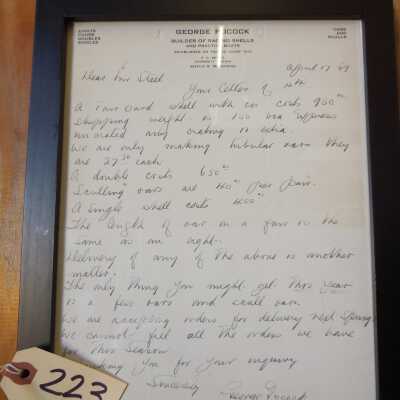 EIGHTS
FOURS
DOUBLES
SINGLES
GEORGE POCOCK
BUILDER OF RACING SHELLS
AND PRACTICE BOATS
OARS
AND
SCULLS
April 17
Dear Mr Steel
Your letter of
A Four oared shell with cox costs 950
Shipping weight is
uncrated crating is extra.
We are only making tubular oars they
are 27 50 each
A double costs 650
Sculling oars are 40 per pair.
A single shell costs
The length of oar in a four is the
same as an eight.
Delivery of any of the above is another
matter.
The only thing you might get this year
is a few oars and
We are accepting orders for delivery next Spring
We cannot fill all the orders we have
for this season
Thanking you for your inquiry
Sincerely
George Pocock
223